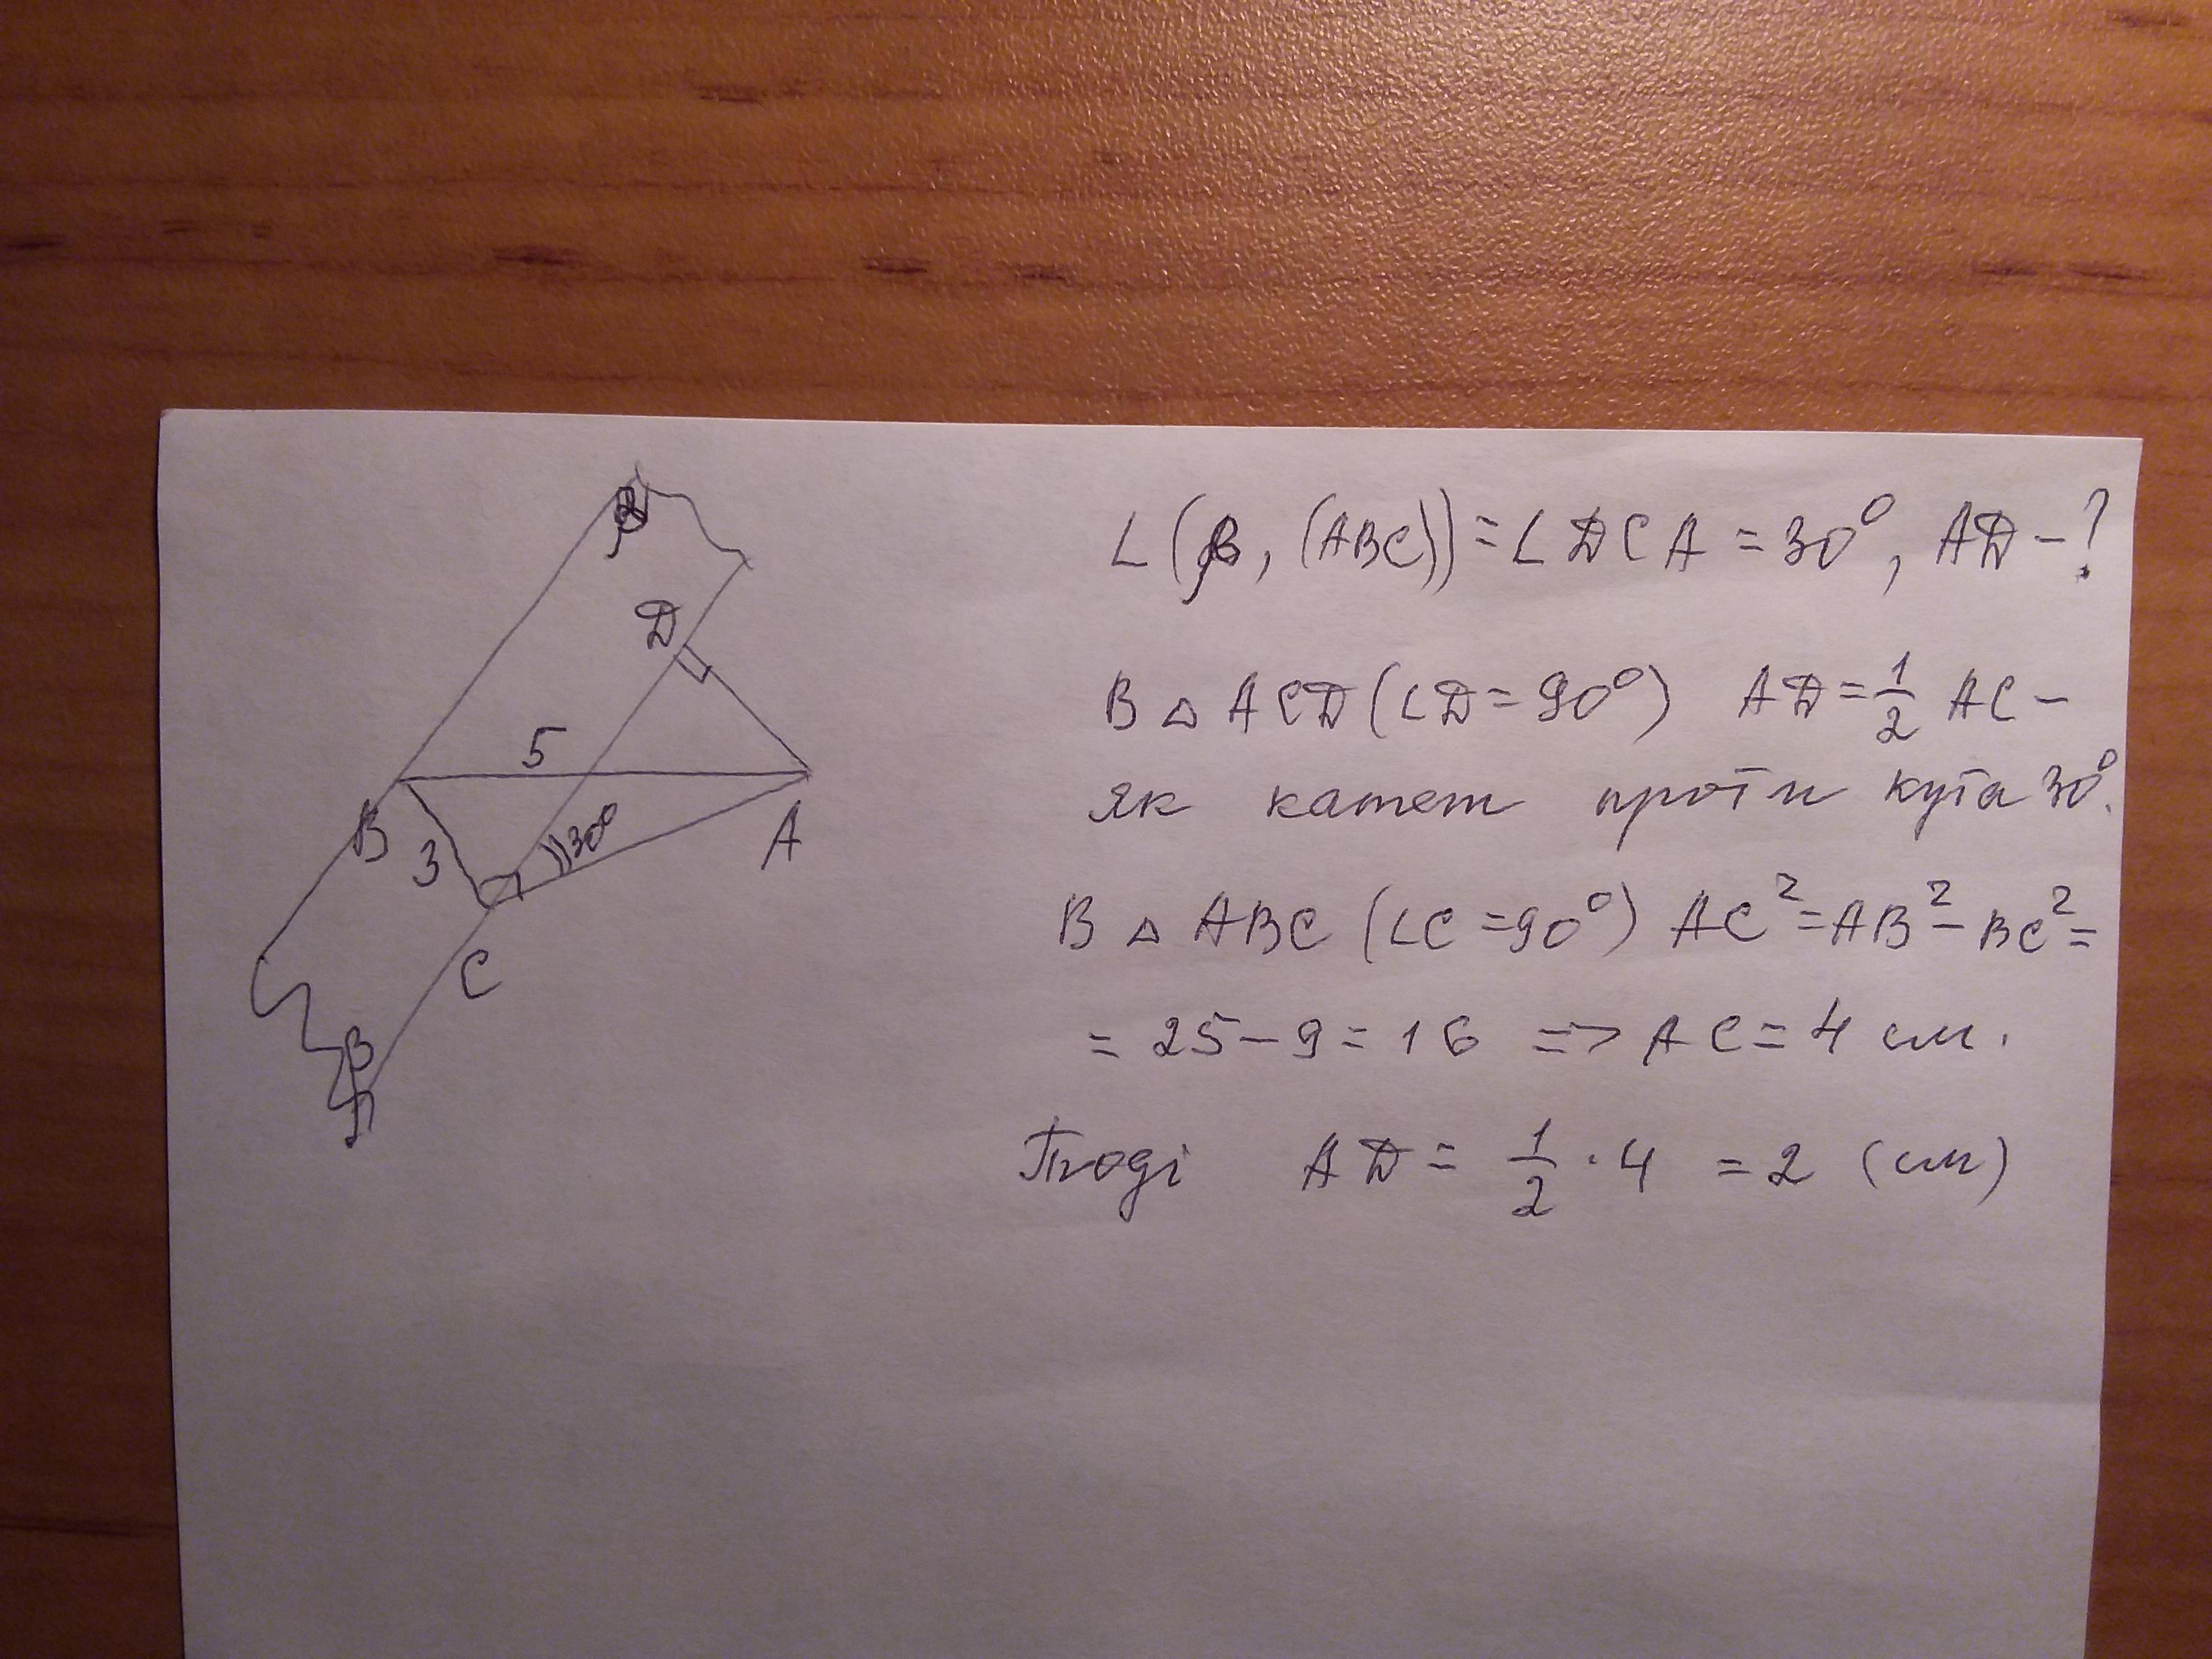 β
D
5
B
3
30°
A
C
β
∠(β, (ABC)) = ∠DCA = 30°, AD - ?
В △ ACD (∠D = 90°) AD = 1/2 AC -
як катет проти кута 30°.
В △ ABC (∠C = 90°) AC² = AB² - BC² =
= 25 - 9 = 16 => AC = 4 см.
Тоді AD = 1/2 · 4 = 2 (см)